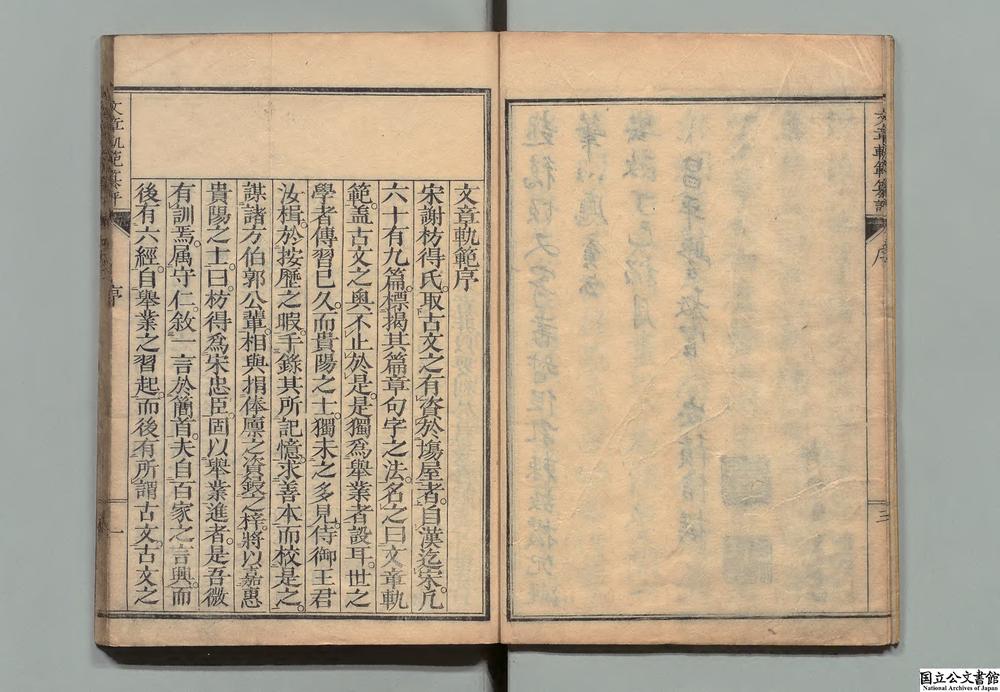 文章軌範序
宋謝枋得氏取古文之有資於塲屋者自漢迄宋凡
六十有九篇標揭其篇章句字之法名之曰文章軌
範盖古文之奥不止於是是獨爲舉業者設耳世之
學者傳習已久而貴陽之士獨未之多見侍御王君
汝楫於按歷之暇手錄其所記憶求善本而校是之
謀諸方伯郭公輩相與捐俸廪之資鋟之梓將以嘉惠
貴陽之士曰枋得爲宋忠臣固以舉業進者是吾微
有訓焉属守仁敘一言於簡首夫自百家之言興而
後有六經自舉業之習起而後有所謂古文古文之
文章軌範纂評
序
一
文章軌範纂評
序
三
国立公文書館
National Archives of Japan